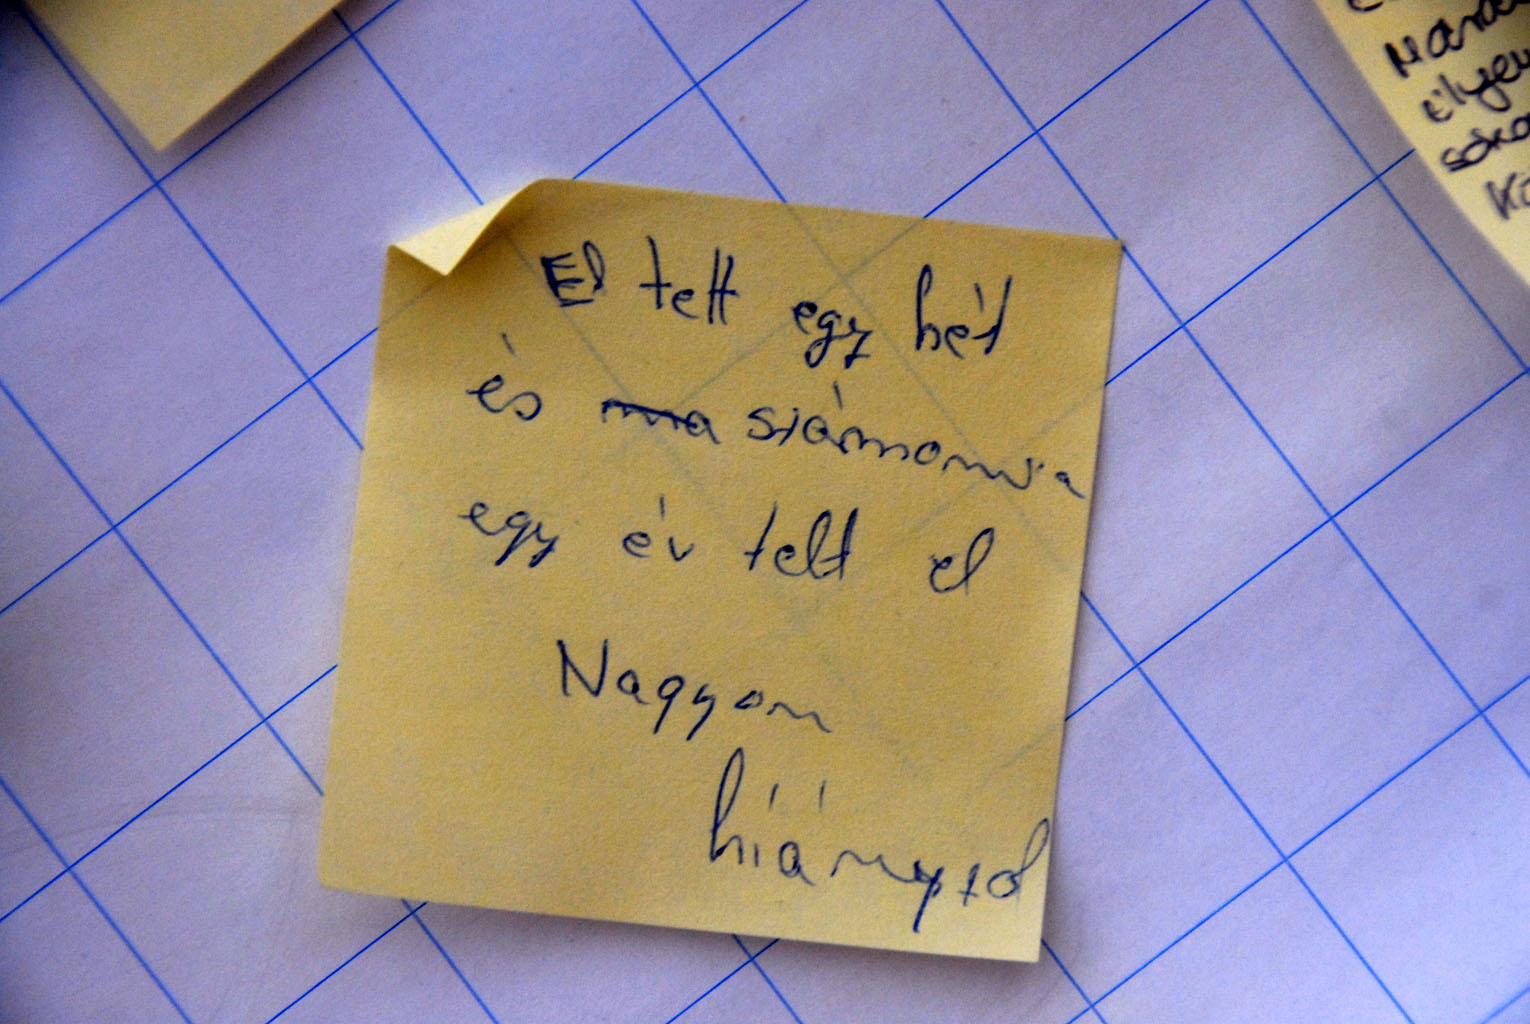 El telt egy hét
és ma siámomra
egy év telt el
Nagyon
hiányzol
élyen